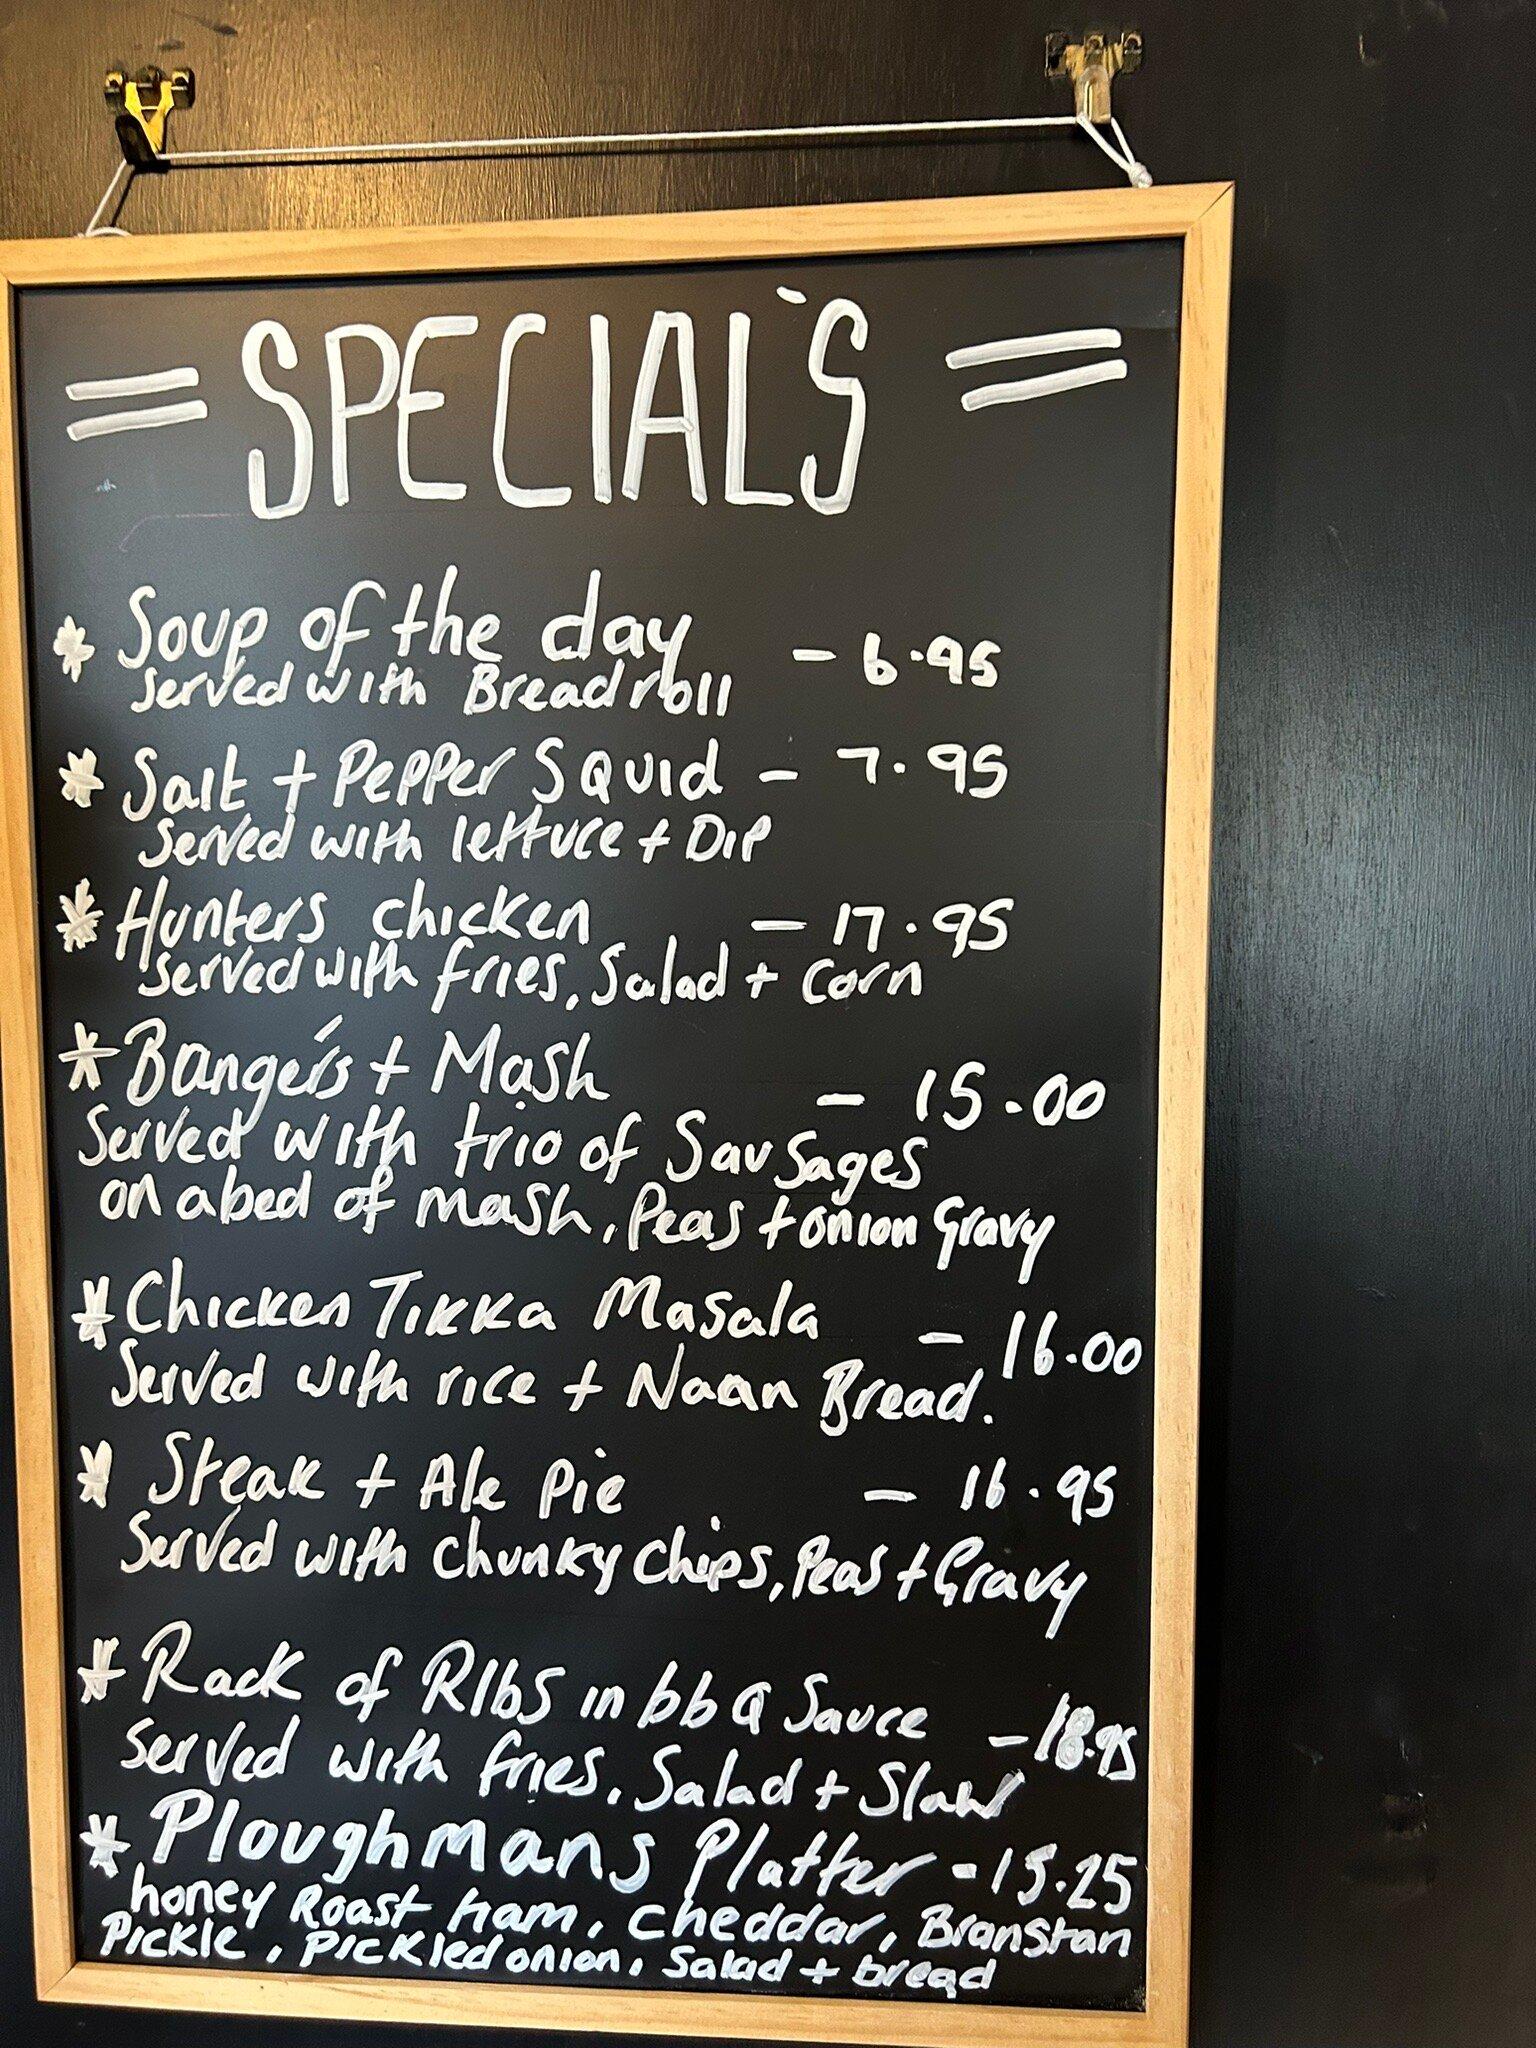 = SPECIAL'S =
* Soup of the day - 6.95
served with Bread roll
* Salt + Pepper Squid - 7.95
Served with lettuce + Dip
* Hunters chicken - 17.95
served with fries, Salad + corn
* Banger's + Mash - 15.00
Served with trio of Sausages
on a bed of mash, Peas + onion Gravy
* Chicken Tikka Masala - 16.00
Served with rice + Naan Bread.
* Steak + Ale Pie - 16.95
Served with chunky chips, Peas + Gravy
* Rack of Ribs in bbQ Sauce - 18.95
Served with fries, Salad + Slaw
* Ploughmans Platter - 15.25
honey Roast ham, cheddar, Branstan
Pickle, Pickled onion, Salad + bread